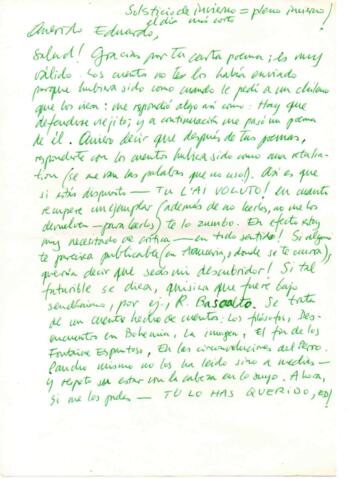 Solsticio de invierno = pleno invierno/
el día más corto
Querido Eduardo,
Salud! Gracias por tu carta poema; es muy
válido. Los cuentos no te los había enviado
porque hubiera sido como cuando le pedí a un chileno
que los viera: me respondió algo así como: Hay que
defenderse viejito; y a continuación me pasó un poema
de él. Quiero decir que después de tus poemas,
responderte con los cuentos hubiera sido como una retalia-
tion (se me van las palabras que no uso). Así es que
si estás dispuesto — TU L'AI VOLUTO! en cuanto
recupere un ejemplar (además de no leerlos, no me los
devuelven — para leerlos) te lo zumbo. En efecto estoy
muy necesitado de crítica — en todo sentido! Si alguno
te pareciera publicable (en donde se te ocurra),
querría decir que seas mi descubridor! Si tal
futurible se diera, quisiera que fuere bajo
seudónimo, por ej., R. Basoalto. Se trata
de un cuento hecho de cuentos: Los filósofos, Des-
encuentros en Bohemia, La imagen, El fin de los
Fontaine Espantoso, En las circunvoluciones del perro.
Pancho mismo no los ha leído sino a medias —
y repetí sin estar con la cabeza en lo suyo. Ahora,
si me los pides — TU LO HAS QUERIDO, ED!